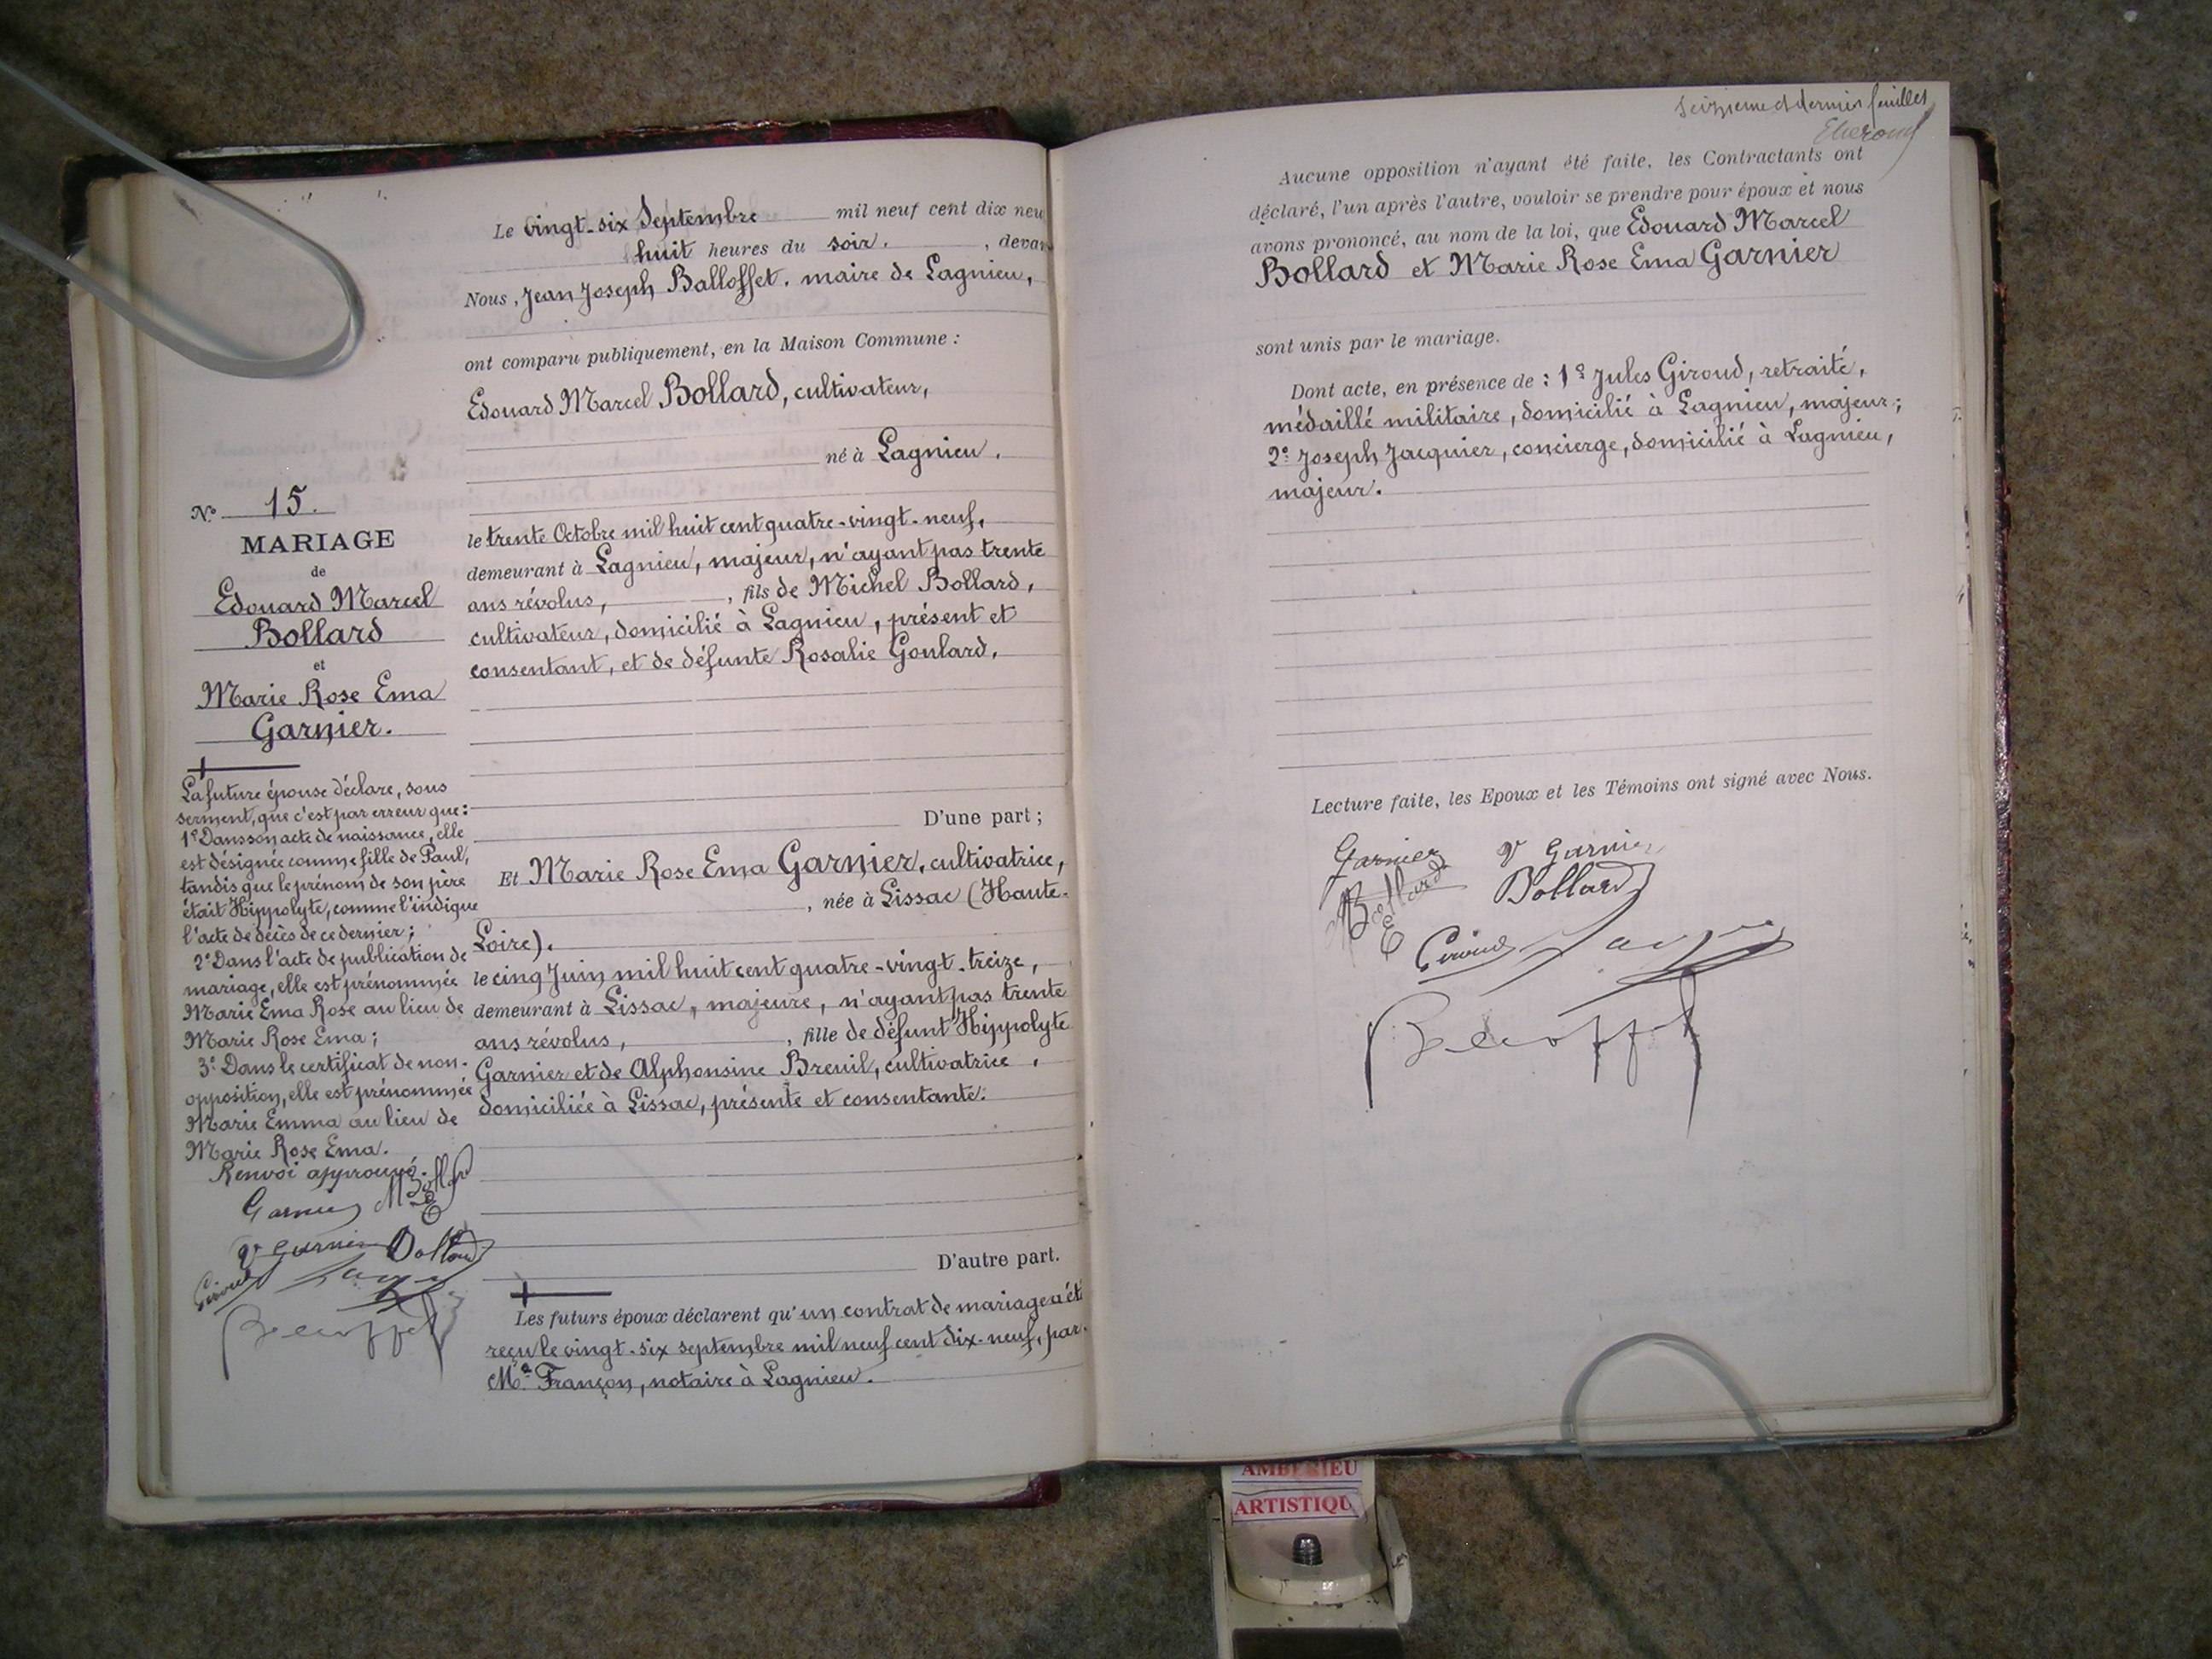 N° 15.
MARIAGE
de
Edouard Marcel
Bollard
et
Marie Rose Ema
Garnier.
La future épouse déclare, sous
serment, que c'est par erreur que :
1° Dans son acte de naissance, elle
est désignée comme fille de Paul,
tandis que le prénom de son père
était Hippolyte, comme l'indique
l'acte de décès de ce dernier ;
2° Dans l'acte de publication de
mariage, elle est prénommée
Marie Ema Rose au lieu de
Marie Rose Ema ;
3° Dans le certificat de non-
opposition, elle est prénommée
Marie Emma au lieu de
Marie Rose Ema.
Renvoi approuvé.
Garnier
Vve Garnier Bollard
Giroud
Le vingt-six Septembre mil neuf cent dix neu
huit heures du soir. , devan
Nous, Jean Joseph Balloffet. maire de Lagnieu,
ont comparu publiquement, en la Maison Commune :
Edouard Marcel Bollard, cultivateur,
né à Lagnieu.
le trente Octobre mil huit cent quatre-vingt-neuf,
demeurant à Lagnieu, majeur, n'ayant pas trente
ans révolus, , fils de Michel Bollard,
cultivateur, domicilié à Lagnieu, présent et
consentant, et de défunte Rosalie Goulard,
D'une part ;
Et Marie Rose Ema Garnier, cultivatrice,
, née à Lissac (Haute-
Loire).
le cinq Juin mil huit cent quatre-vingt-treize,
demeurant à Lissac, majeure, n'ayant pas trente
ans révolus, , fille de défunt Hippolyte
Garnier et de Alphonsine Breuil, cultivatrice,
domiciliée à Lissac, présente et consentante.
D'autre part.
Les futurs époux déclarent qu'un contrat de mariage a été
reçu le vingt-six septembre mil neuf cent dix-neuf, par
Me Françon, notaire à Lagnieu.
Seizième et dernier feuillet
Aucune opposition n'ayant été faite, les Contractants ont
déclaré, l'un après l'autre, vouloir se prendre pour époux et nous
avons prononcé, au nom de la loi, que Edouard Marcel
Bollard et Marie Rose Ema Garnier
sont unis par le mariage.
Dont acte, en présence de : 1° Jules Giroud, retraité,
médaillé militaire, domicilié à Lagnieu, majeur ;
2° Joseph Jacquier, concierge, domicilié à Lagnieu,
majeur.
Lecture faite, les Epoux et les Témoins ont signé avec Nous.
Garnier Vve Garnier
Bollard E Bollard
Giroud
AMBERIEU
ARTISTIQU